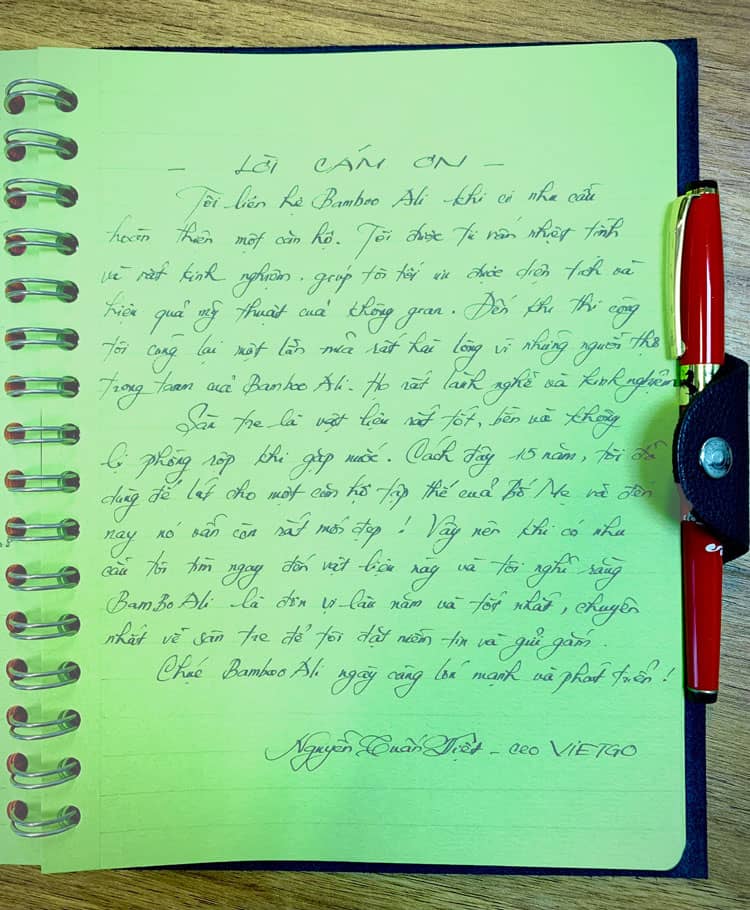 - LỜI CÁM ƠN -
Tôi liên hệ Bamboo Ali khi có nhu cầu
hoàn thiện một căn hộ. Tôi được tư vấn nhiệt tình
và rất kinh nghiệm. giúp tôi tối ưu được diện tích và
hiệu quả mỹ thuật cuả không gian. Đến khi thi công
tôi cũng lại một lần nữa rất hài lòng vì những người thợ
trong team cuả Bamboo Ali. Họ rất lành nghề và kinh nghiệm
Sàn tre là vật liệu rất tốt, bền và không
bị phồng rộp khi gặp nước. Cách đây 15 năm, tôi đã
dùng để lát cho một căn hộ tập thể cuả Bố Mẹ và đến
nay nó vẫn còn rất mới đẹp! Vậy nên khi có nhu
cầu tôi tìm ngay đến vật liệu này và tôi nghĩ rằng
BamBo Ali là đơn vị lâu năm và tốt nhất, chuyên
nhất về sàn tre để tôi đặt niềm tin và gửi gắm.
Chúc Bamboo Ali ngày càng lớn mạnh và phát triển!
Nguyễn Tuấn Việt - CEO VIETGO